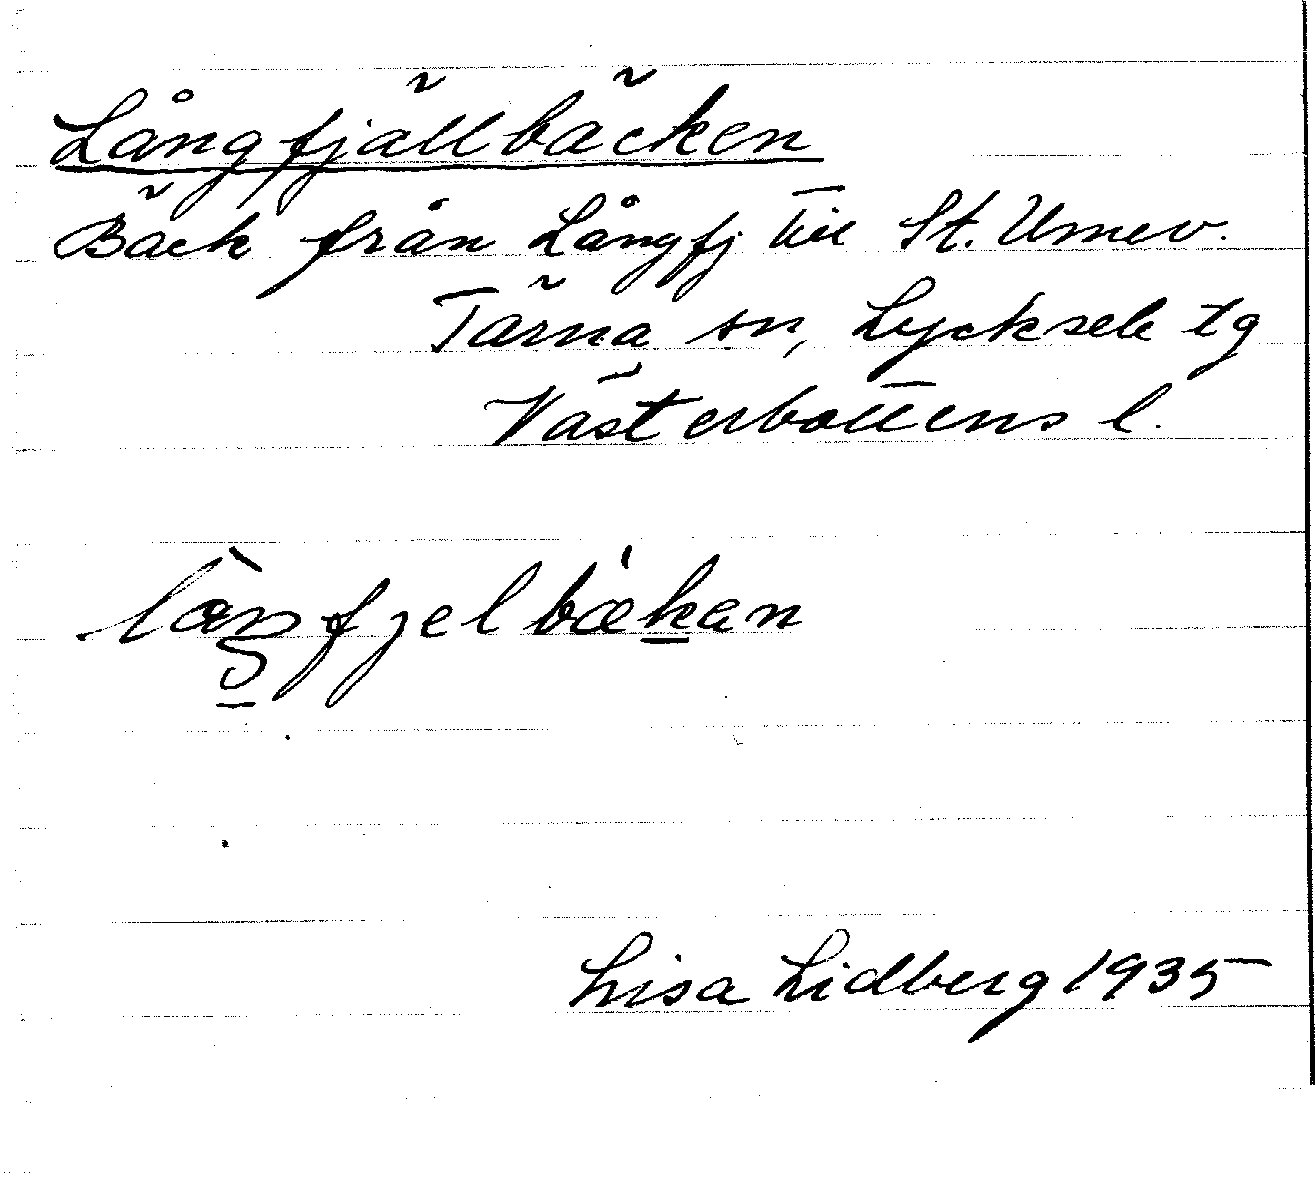 Långfjällbäcken
Bäck från Långfj till St. Umev.
Tärna sn, Lycksele tg
Västerbottens l.
Lisa Lidberg 1935